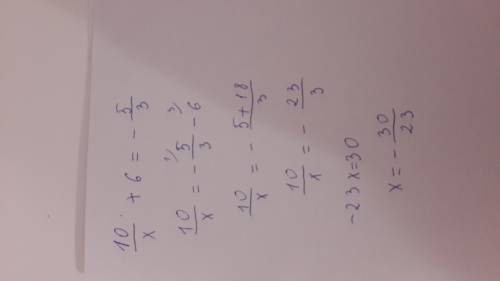 10/x + 6 = - 5/3
10/x = - ¹⁾5/3 - ³⁾6
10/x = - (5+18)/3
10/x = - 23/3
-23x=30
x = - 30/23